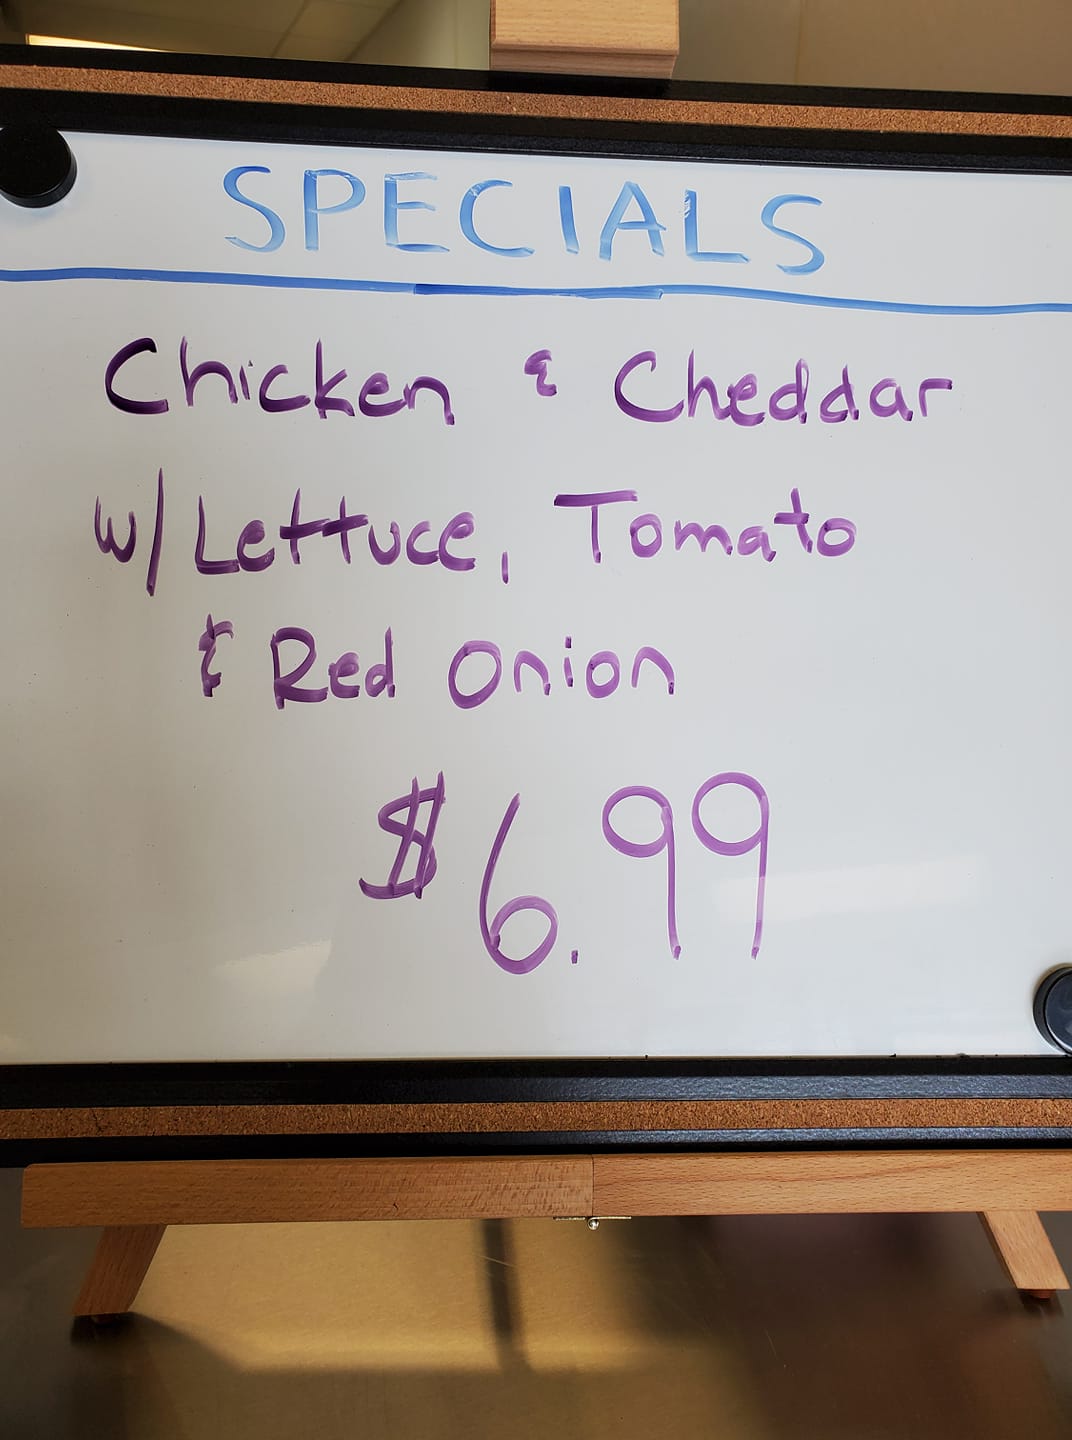 SPECIALS
Chicken & Cheddar
w/ Lettuce, Tomato
& Red Onion
$6.99